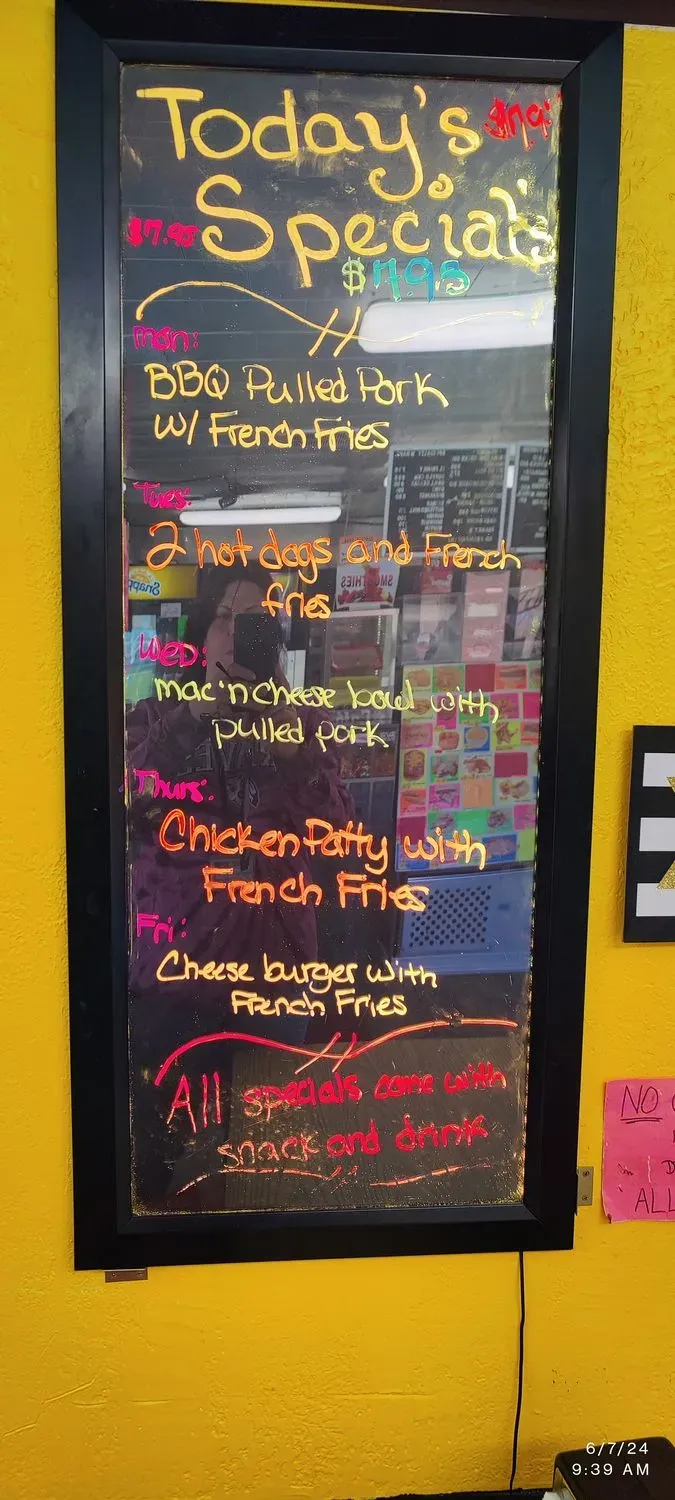 Today's
Special's
$7.95
$7.95
Mon:
BBQ Pulled Pork
w/ French Fries
Tues:
2 hot dogs and French
fries
WED:
mac 'n cheese bowl with
pulled pork
Thurs:
Chicken Patty with
French Fries
Fri:
Cheese burger with
French Fries
All specials come with
snack and drink
NO
ALL
SMOOTHIES
Snapp
6/7/24
9:39 AM